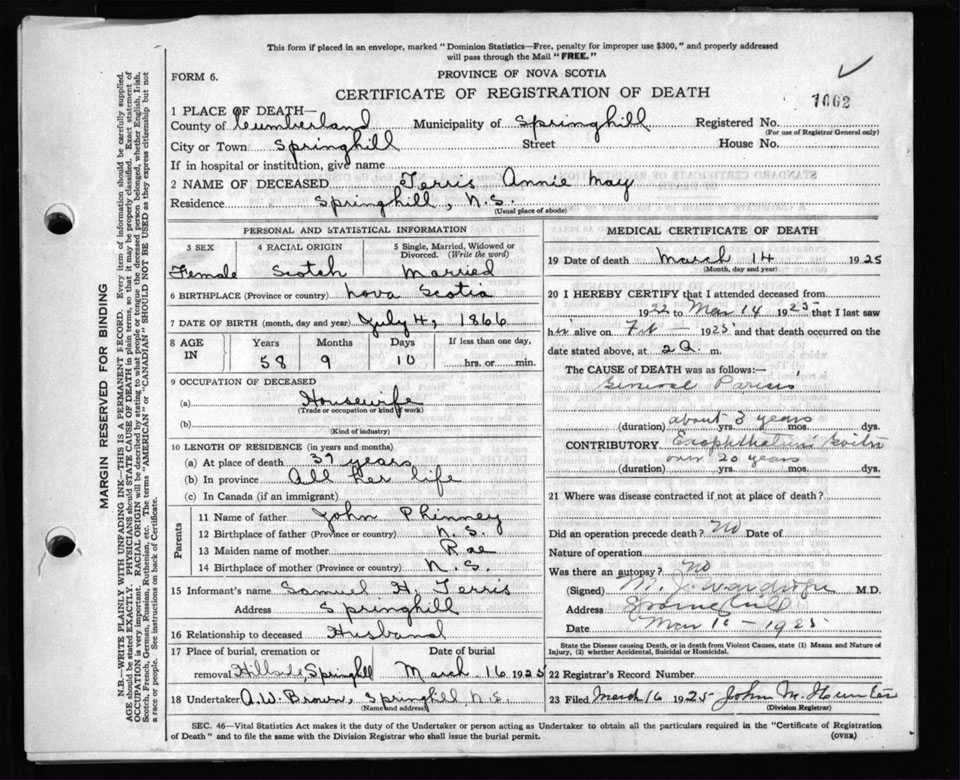 This form if placed in an envelope, marked "Dominion Statistics—Free, penalty for improper use $300," and properly addressed
will pass through the Mail "FREE."
FORM 6.
PROVINCE OF NOVA SCOTIA
CERTIFICATE OF REGISTRATION OF DEATH
1062
1 PLACE OF DEATH—
County of Cumberland Municipality of Springhill Registered No.
(For use of Registrar General only)
City or Town Springhill Street House No.
If in hospital or institution, give name
2 NAME OF DECEASED Ferris Annie May
Residence Springhill, N.S.
(Usual place of abode)
PERSONAL AND STATISTICAL INFORMATION
3 SEX 4 RACIAL ORIGIN 5 Single, Married, Widowed or Divorced. (Write the word)
Female Scotch Married
6 BIRTHPLACE (Province or country) Nova Scotia
7 DATE OF BIRTH (month, day and year) July 4, 1866
8 AGE IN Years Months Days If less than one day,
58 9 10 hrs. or min.
9 OCCUPATION OF DECEASED
(a) Housewife
(Trade or occupation or kind of work)
(b)
(Kind of industry)
10 LENGTH OF RESIDENCE (in years and months)
(a) At place of death 37 years
(b) In province All her life
(c) In Canada (if an immigrant)
Parents
11 Name of father John Phinney
12 Birthplace of father (Province or country) N.S.
13 Maiden name of mother Rae
14 Birthplace of mother (Province or country) N.S.
15 Informant's name Samuel H Ferris
Address Springhill
16 Relationship to deceased Husband
17 Place of burial, cremation or Date of burial
removal Hillside, Springhill March 16 1925
18 Undertaker A.W. Brown, Springhill, N.S.
(Name and address)
MEDICAL CERTIFICATE OF DEATH
19 Date of death March 14 1925
(Month, day and year)
20 I HEREBY CERTIFY that I attended deceased from
1922 to Mar 14 1925 that I last saw
her alive on Feb — 1925 and that death occurred on the
date stated above, at 2 a. m.
The CAUSE of DEATH was as follows:—
General Paresis
about 3 years
(duration) yrs. mos. dys.
CONTRIBUTORY Exophthalmic Goitre
over 20 years
(duration) yrs. mos. dys.
21 Where was disease contracted if not at place of death?
Did an operation precede death? No Date of
Nature of operation
Was there an autopsy? No
(Signed) M. J. Wardrope M.D.
Address Springhill
Date Mar 1925
State the Disease causing Death, or in death from Violent Causes, state (1) Means and Nature of
Injury, (2) whether Accidental, Suicidal or Homicidal.
22 Registrar's Record Number
23 Filed March 16 1925 John M. Hunter
(Division Registrar)
SEC. 46—Vital Statistics Act makes it the duty of the Undertaker or person acting as Undertaker to obtain all the particulars required in the "Certificate of Registration
of Death" and to file the same with the Division Registrar who shall issue the burial permit.
(OVER)
MARGIN RESERVED FOR BINDING
N.B.—WRITE PLAINLY WITH UNFADING INK—THIS IS A PERMANENT RECORD. Every item of information should be carefully supplied.
AGE should be stated EXACTLY. PHYSICIANS should STATE CAUSE OF DEATH in plain terms, so that it may be properly classified. Exact statement of
OCCUPATION is very important. RACIAL ORIGIN will be described by stating to what people or tongue the deceased person belonged, whether English, Irish,
Scotch, French, German, Russian, Ruthenian, etc. The terms "AMERICAN" or "CANADIAN" SHOULD NOT BE USED as they express citizenship but not
a race or people. See instructions on back of Certificate.